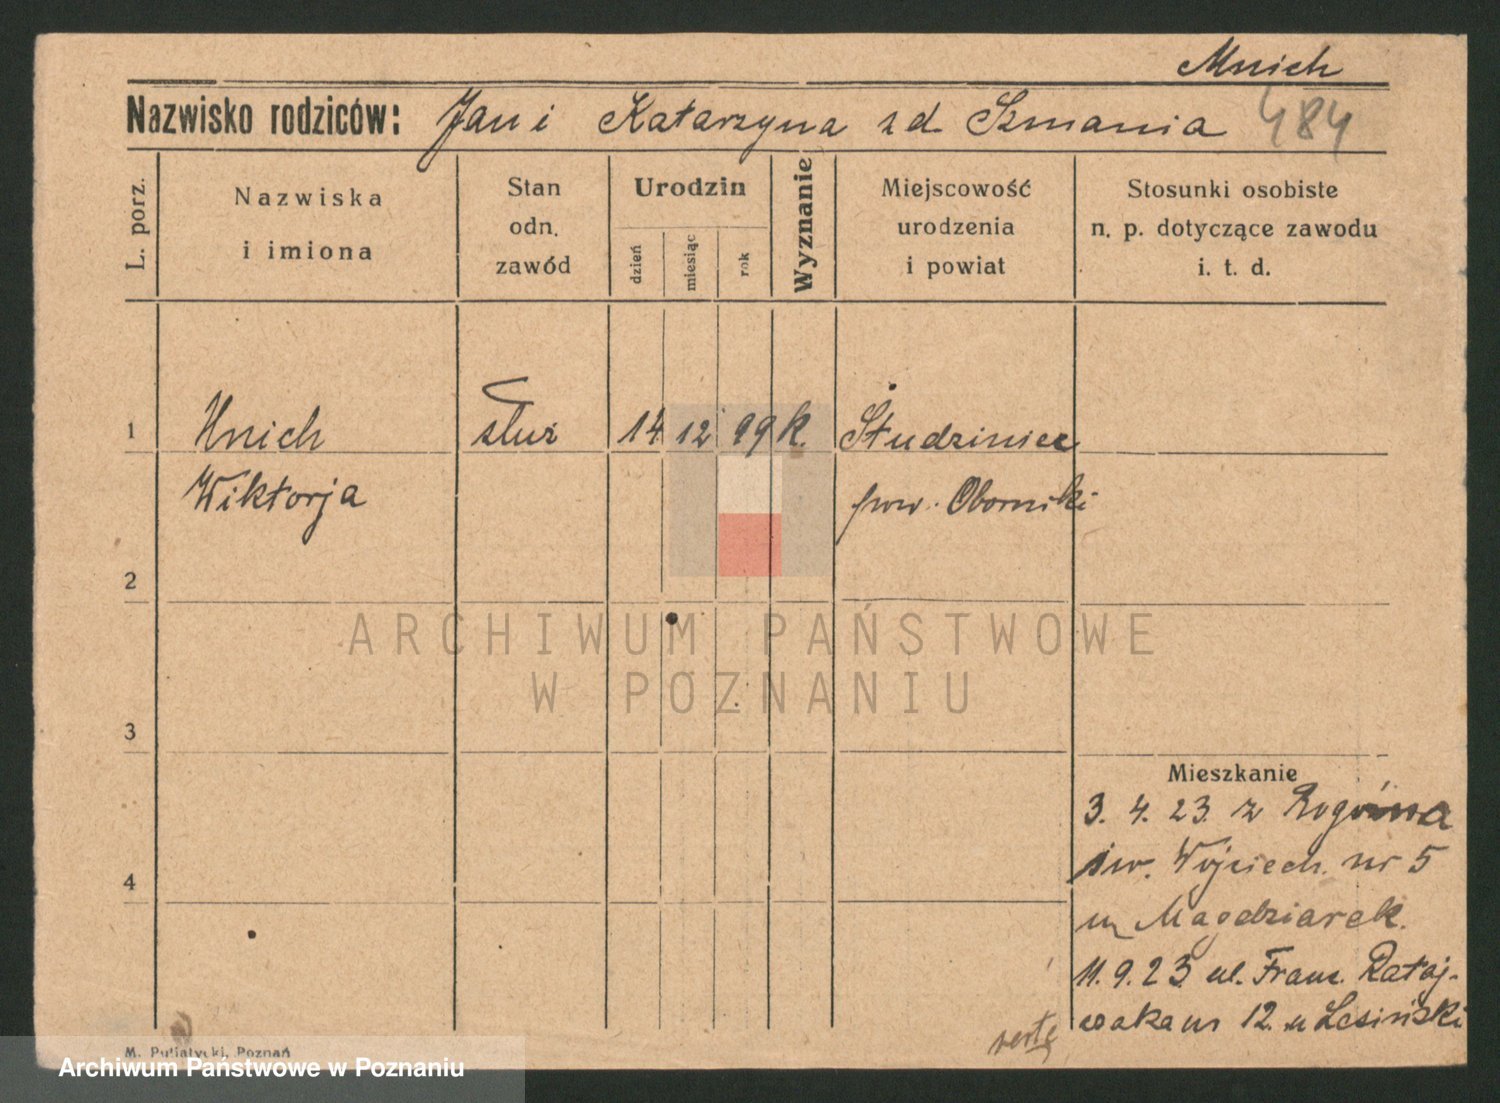 Mnich
Nazwisko rodziców: Jan i Katarzyna zd. Szmania 484
L. porz.
Nazwiska
i imiona
Stan
odn.
zawód
Urodzin
dzień
miesiąc
rok
Wyznanie
Miejscowość
urodzenia
i powiat
Stosunki osobiste
n. p. dotyczące zawodu
i. t. d.
1 Mnich służ 14 12 99 k. Studziniec
Wiktorja pow. Oborniki
2
3
4
Mieszkanie
3. 4. 23. z Rogoźna
św. Wojciech. nr 5
u Magdziarek.
11. 9. 23 ul. Franc. Rataj-
czaka nr 12. u Lesiński
verte
M. Putiatycki, Poznań
ARCHIWUM PAŃSTWOWE
W POZNANIU
Archiwum Państwowe w Poznaniu